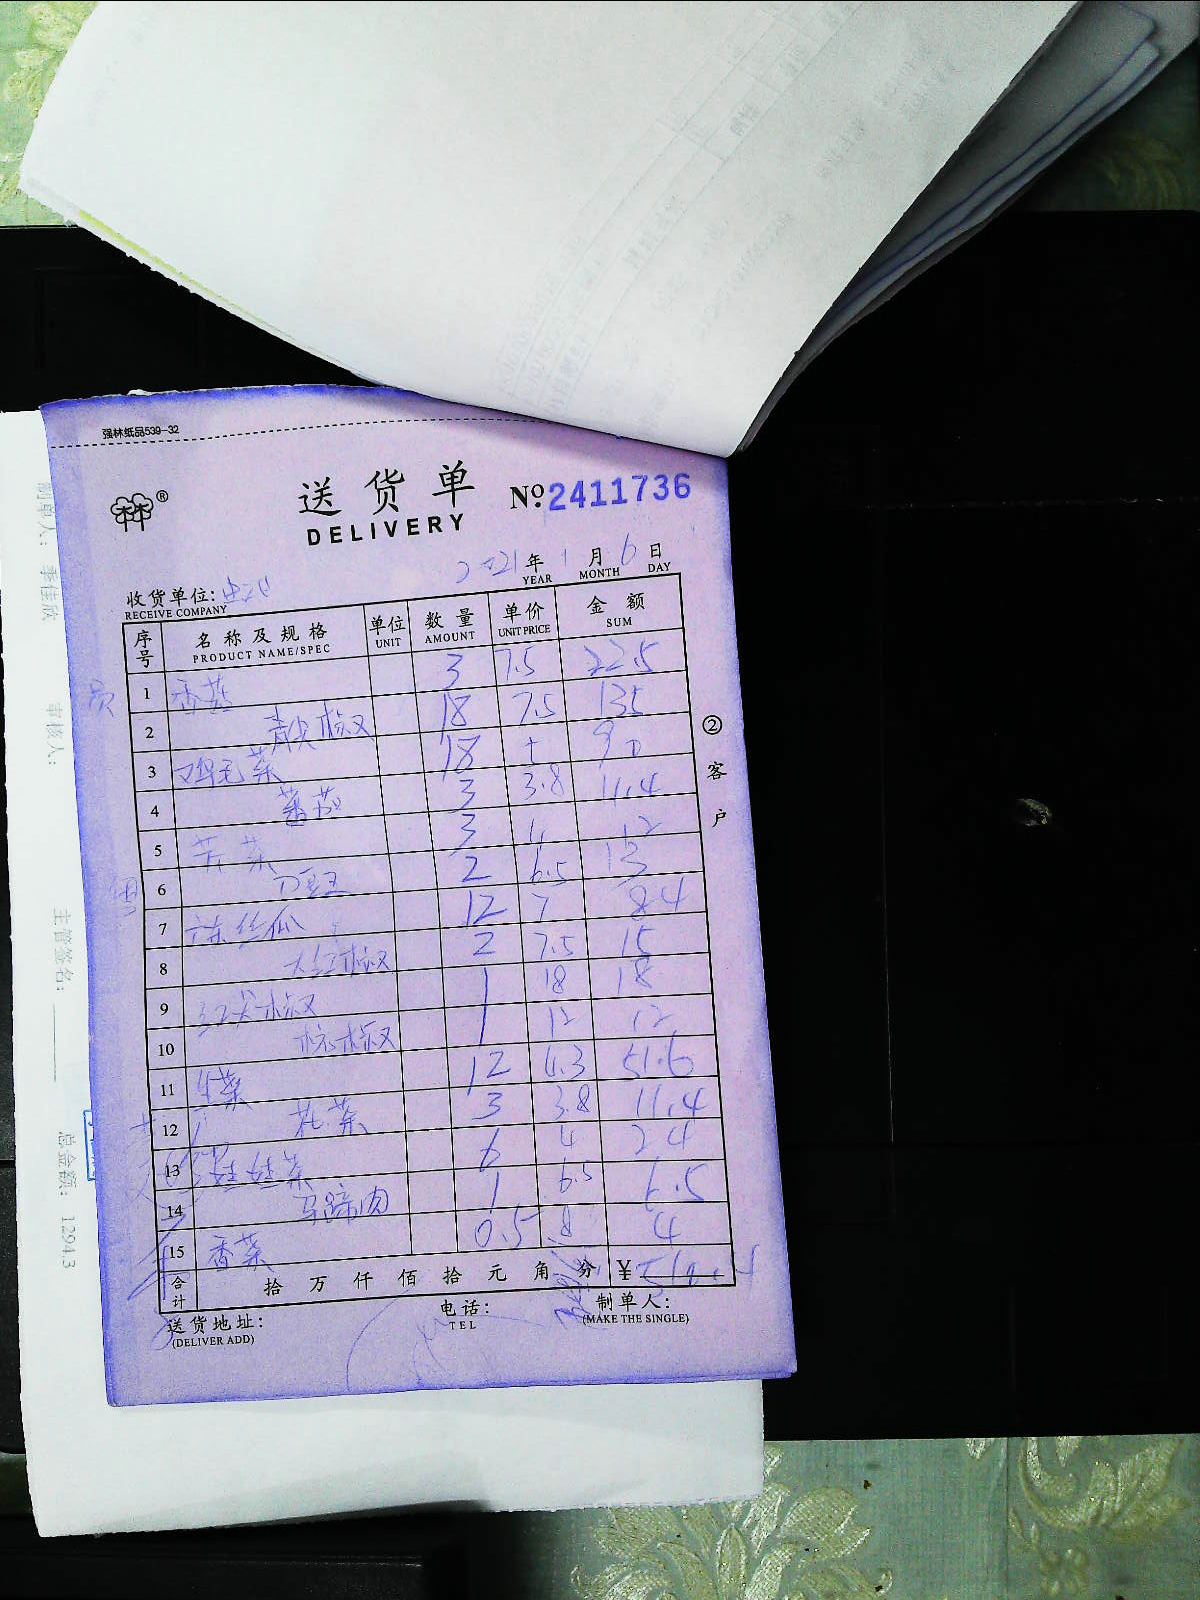 强林纸品539-32
送货单 №2411736
DELIVERY
2021年 1月 6日
YEAR MONTH DAY
收货单位:
RECEIVE COMPANY
序号 名称及规格 单位 数量 单价 金额
PRODUCT NAME/SPEC UNIT AMOUNT UNIT PRICE SUM
1 香菇 3 7.5 22.5
2 青尖椒 18 7.5 135
3 鸡毛菜 18 5 90
4 蕃茄 3 3.8 11.4
5 菜 3 4 12
6 刀豆 2 6.5 13
7 丝瓜 12 7 84
8 大红椒 2 7.5 15
9 红尖椒 1 18 18
10 杭椒 1 12 12
11 生菜 12 4.3 51.6
12 花菜 3 3.8 11.4
13 娃娃菜 6 4 24
14 马蹄肉 1 6.5 6.5
15 香菜 0.5 8 4
合计 拾 万 仟 佰 拾 元 角 分 ¥
送货地址: 电话: 制单人:
(DELIVER ADD) TEL (MAKE THE SINGLE)
②客户
制单人: 季佳欣
审核人:
主管签名:
总金额: 1294.3